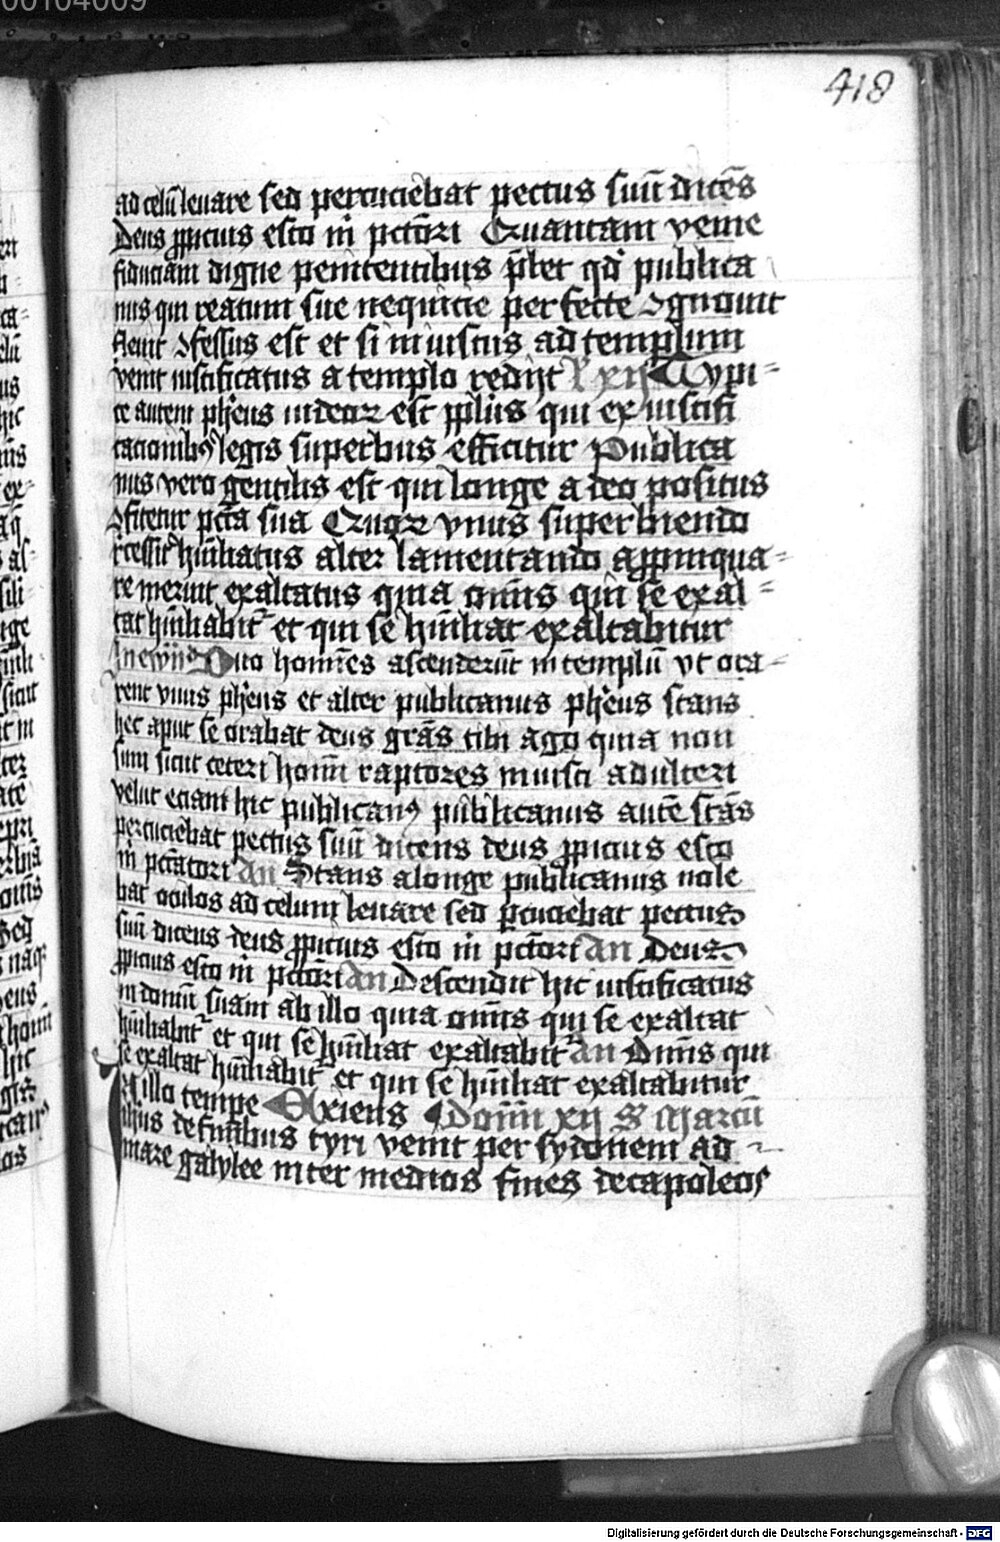 00104009
418
ad celū leuare sed percuciebat pectus suū dicēs
Deus ꝓpicius esto m̄ pctōri Quantam venie
fiduciam digne penitentibus p̄bet qd̄ publica
nus qui reatum sue nequicie perfecte ꝯgnouit
fleuit ꝯfessus est et si iniustus ad templum
venit iustificatus a templo redijt xij Typi⸗
ce autem phr̄eus iudeorꝝ est ppl̄us qui ex iustifi
cacionibꝰ legis superbus efficitur Publica
nus vero gentilis est qui longe a deo positus
ꝯfitetur pctā sua Quorꝝ vnus superbiendo
recessit hūiliatus alter lamentando appropinqua⸗
re meruit exaltatus quia om̄is qui se exal⸗
tat hūiliabit᷑ et qui se hūiliat exaltabitur
In ewᷓ Duo homīes ascenderūt in templū vt ora⸗
rent vnus phr̄eus et alter publicanus phr̄eus stans
hec aput se orabat deus grās tibi ago quia non
sum sicut ceteri homī raptores iniusti adulteri
velut eciam hic publicanꝰ publicanus autē stās
percuciebat pectus suū dicens deus ꝓpicius esto
m̄ pctātori An Stans a longe publicanus nole
bat oculos ad celum leuare sed ꝑcuciebat pectus
suū dicens deus ꝓpicius esto m̄ pctōri An Deus
ꝓpicius esto m̄ pctōri An Descendit hic iustificatus
in domū suam ab illo quia om̄is qui se exaltat
hūiliabit᷑ et qui se hūiliat exaltabit᷑ An Om̄is qui
se exaltat hūiliabit᷑ et qui se hūiliat exaltabitur
In illo tempe Exiens Domī xij S Marcū
ihus de finibus tyri venit per sydonem ad
mare galylee inter medios fines decapoleos
Digitalisierung gefördert durch die Deutsche Forschungsgemeinschaft - DFG